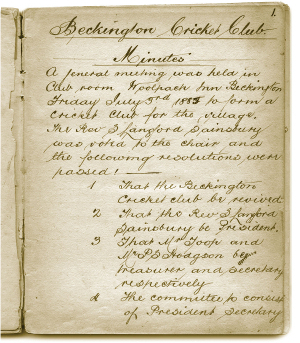 1.
Beckington Cricket Club.
Minutes
A general meeting was held in
Club room Woolpack Inn Beckington
Friday July 3rd 1885 to form a
Cricket Club for the village.
The Rev S Langford Sainsbury
was voted to the chair and
the following resolutions were
passed! —
1 That the Beckington
Cricket club be revived
2 That the Rev S Langford
Sainsbury be President.
3 That Mr Toop and
Mr P S Hodgson be
treasurer and secretary
respectively
4 The committee to consist
of President Secretary